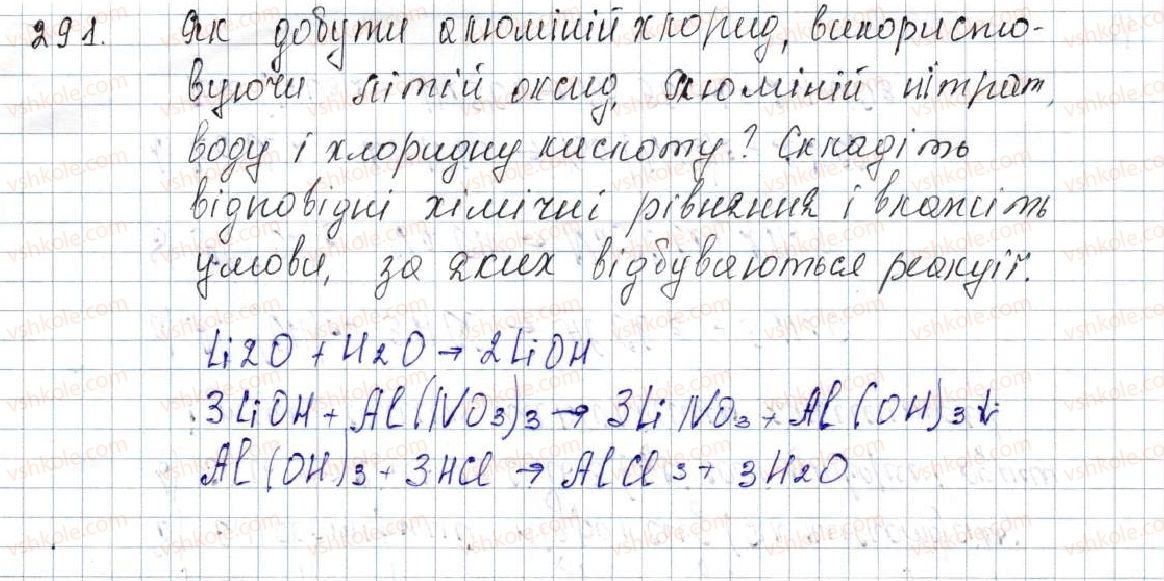 291. Як добути алюміній хлорид, використо-
вуючи літій оксид, алюміній нітрат,
воду і хлоридну кислоту? Складіть
відповідні хімічні рівняння і вкажіть
умови, за яких відбуваються реакції.
Li2O + H2O → 2LiOH
3LiOH + Al(NO3)3 → 3LiNO3 + Al(OH)3↓
Al(OH)3 + 3HCl → AlCl3 + 3H2O